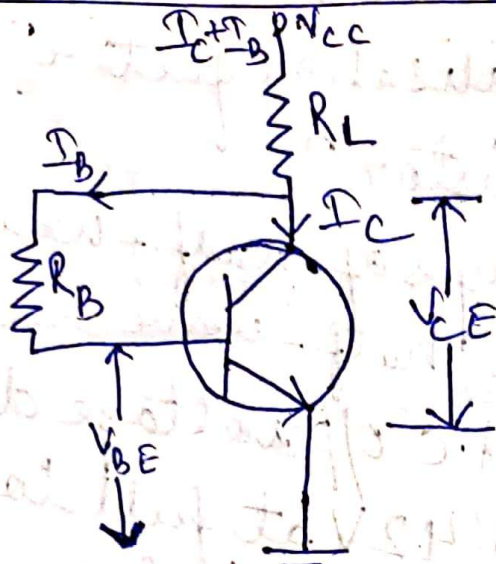 I_C+I_B V_CC
R_L
I_B
I_C
R_B
V_CE
V_BE